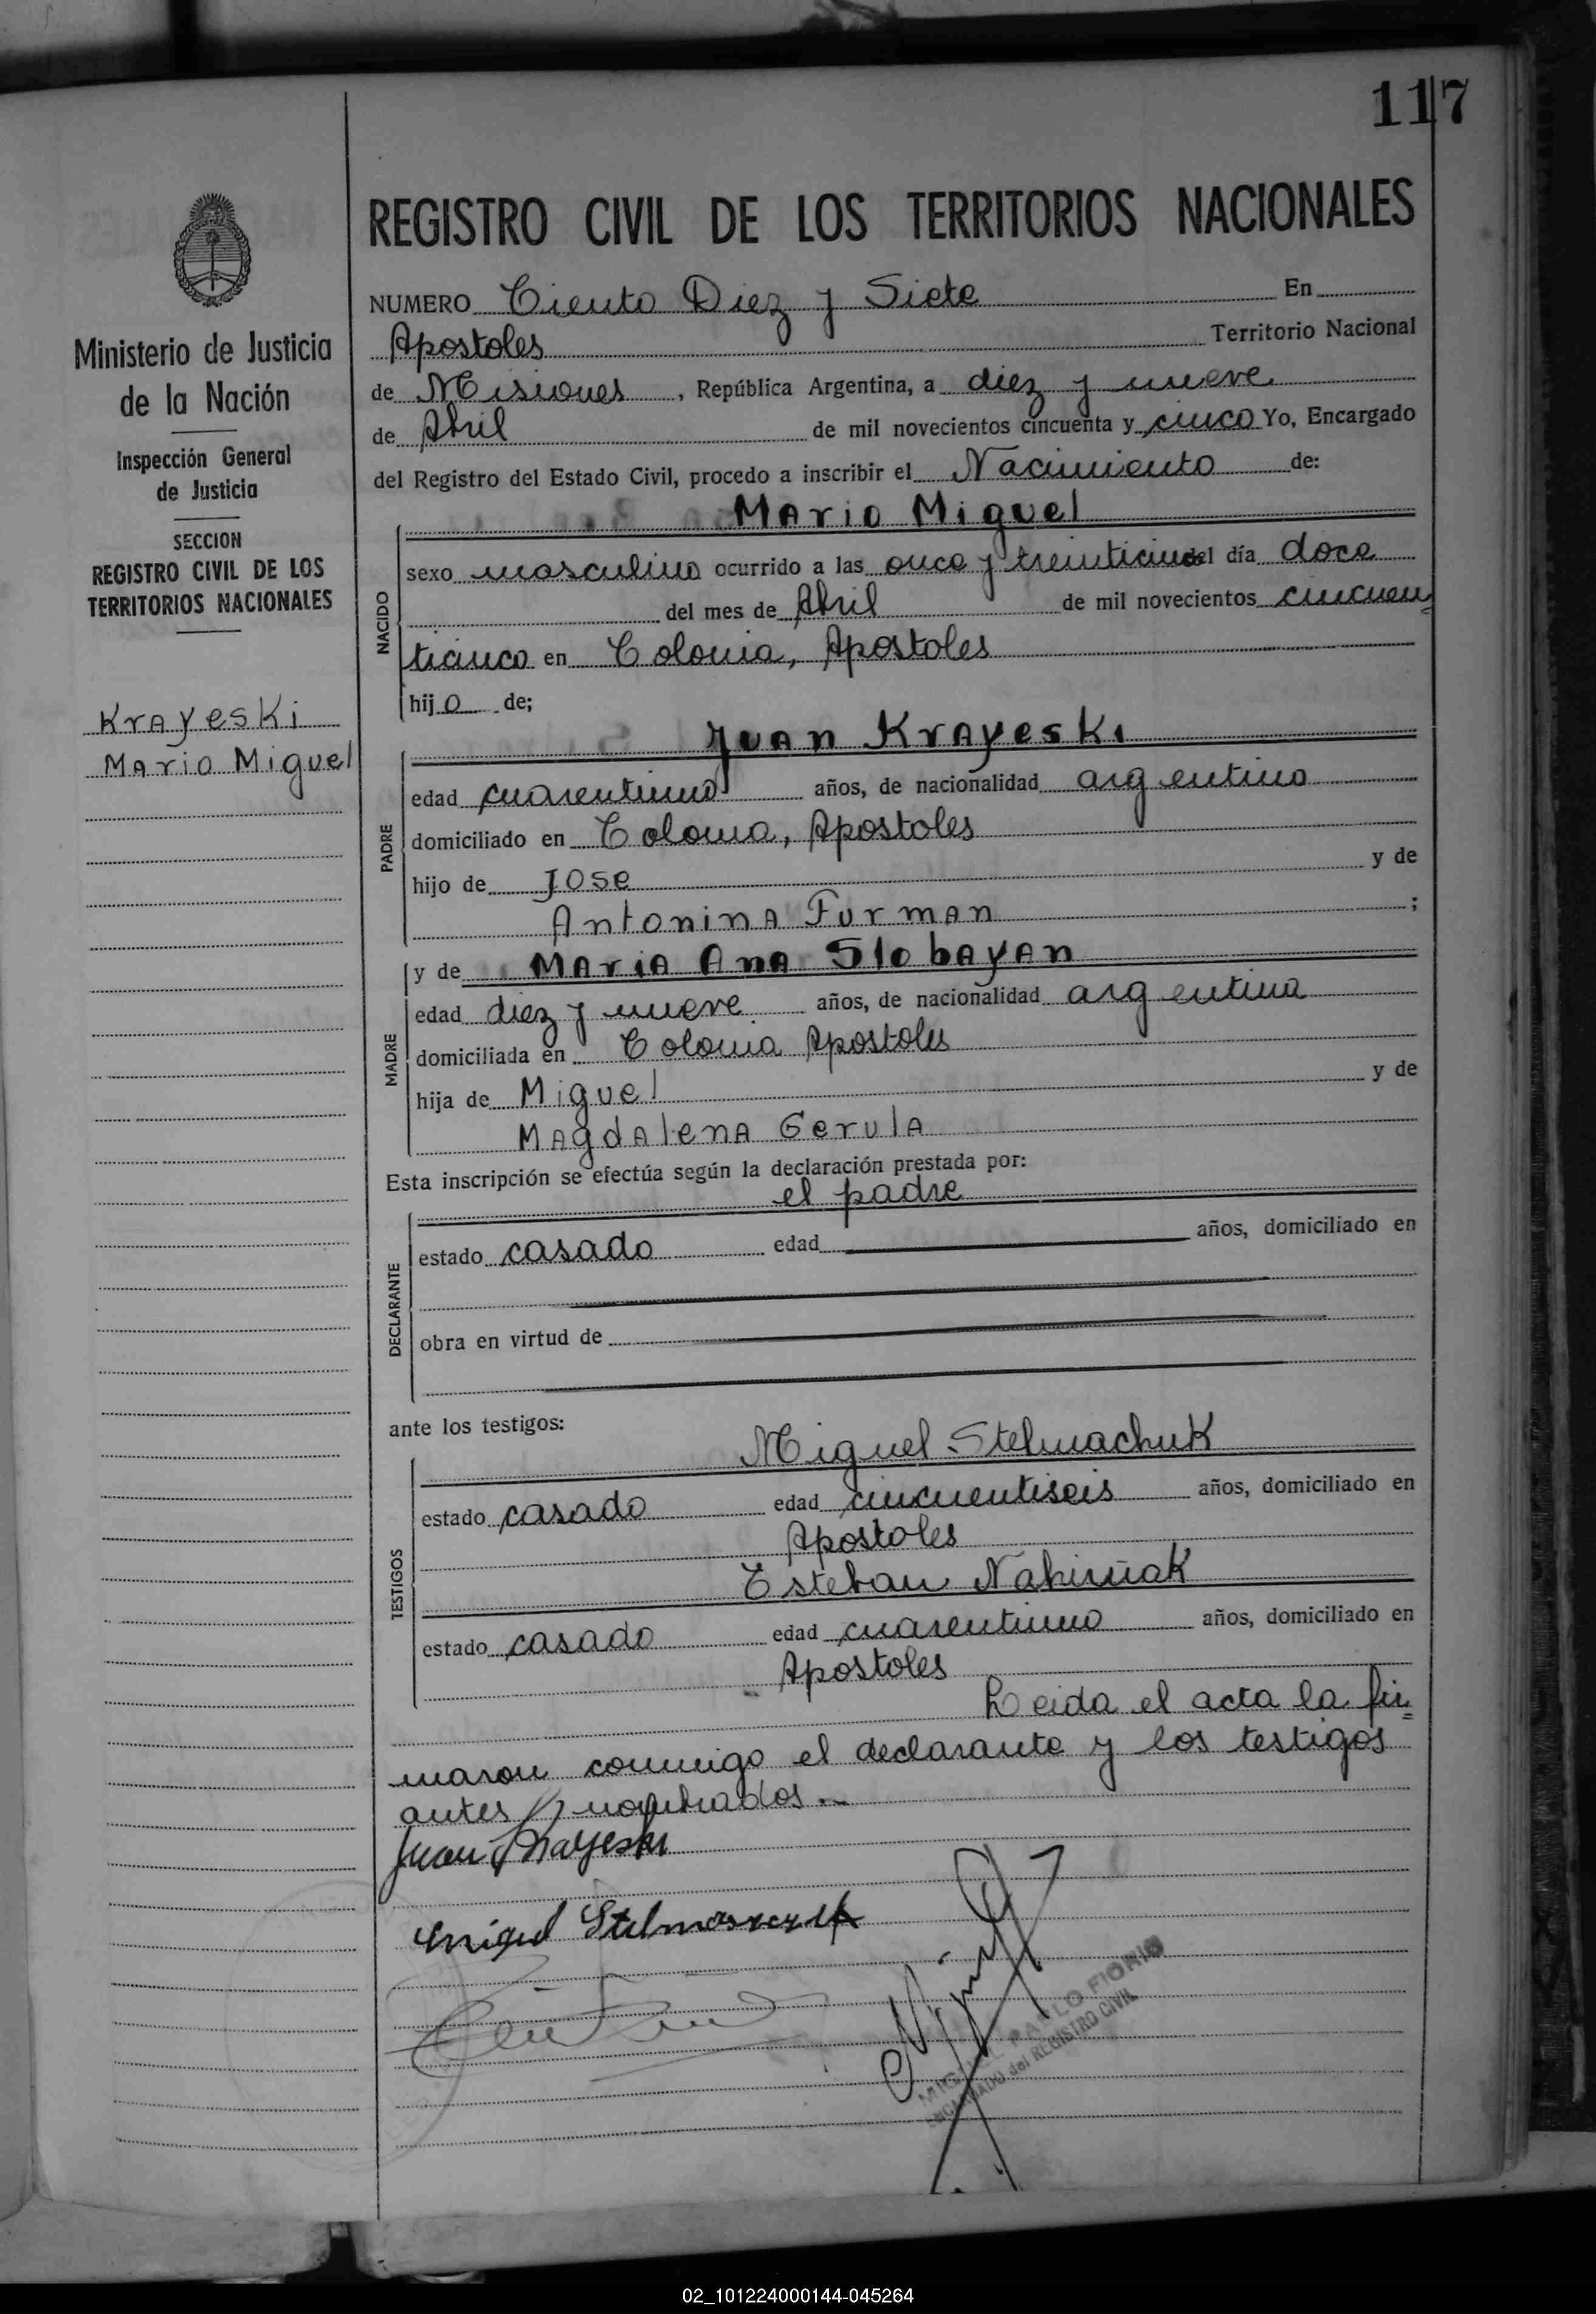 117
REGISTRO CIVIL DE LOS TERRITORIOS NACIONALES
Ministerio de Justicia
de la Nación
Inspección General
de Justicia
SECCION
REGISTRO CIVIL DE LOS
TERRITORIOS NACIONALES
Krayeski
Mario Miguel
NUMERO Ciento Diez y Siete En
Apostoles Territorio Nacional
de Misiones, República Argentina, a diez y nueve
de Abril de mil novecientos cincuenta y cinco Yo, Encargado
del Registro del Estado Civil, procedo a inscribir el Nacimiento de:
NACIDO
Mario Miguel
sexo masculino ocurrido a las once y treinticinco del día doce
del mes de Abril de mil novecientos cincuen=
ticinco en Colonia, Apostoles
hijo de;
PADRE
Juan Krayeski
edad cuarentiuno años, de nacionalidad argentino
domiciliado en Colonia, Apostoles
hijo de Jose y de
Antonina Furman ;
MADRE
y de Maria Ana Slobayan
edad diez y nueve años, de nacionalidad argentina
domiciliada en Colonia Apostoles
hija de Miguel y de
Magdalena Gerula
Esta inscripción se efectúa según la declaración prestada por:
DECLARANTE
el padre
estado casado edad años, domiciliado en
obra en virtud de
ante los testigos:
TESTIGOS
Miguel Stelmachuk
estado casado edad cincuentiseis años, domiciliado en
Apostoles
Esteban Nakiñak
estado casado edad cuarentiuno años, domiciliado en
Apostoles
Leida el acta la fir=
maron conmigo el declarante y los testigos
antes nombrados.-
Juan Krayeski
Miguel
MIGUEL PABLO FIORIO
ENCARGADO del REGISTRO CIVIL
02_101224000144-045264